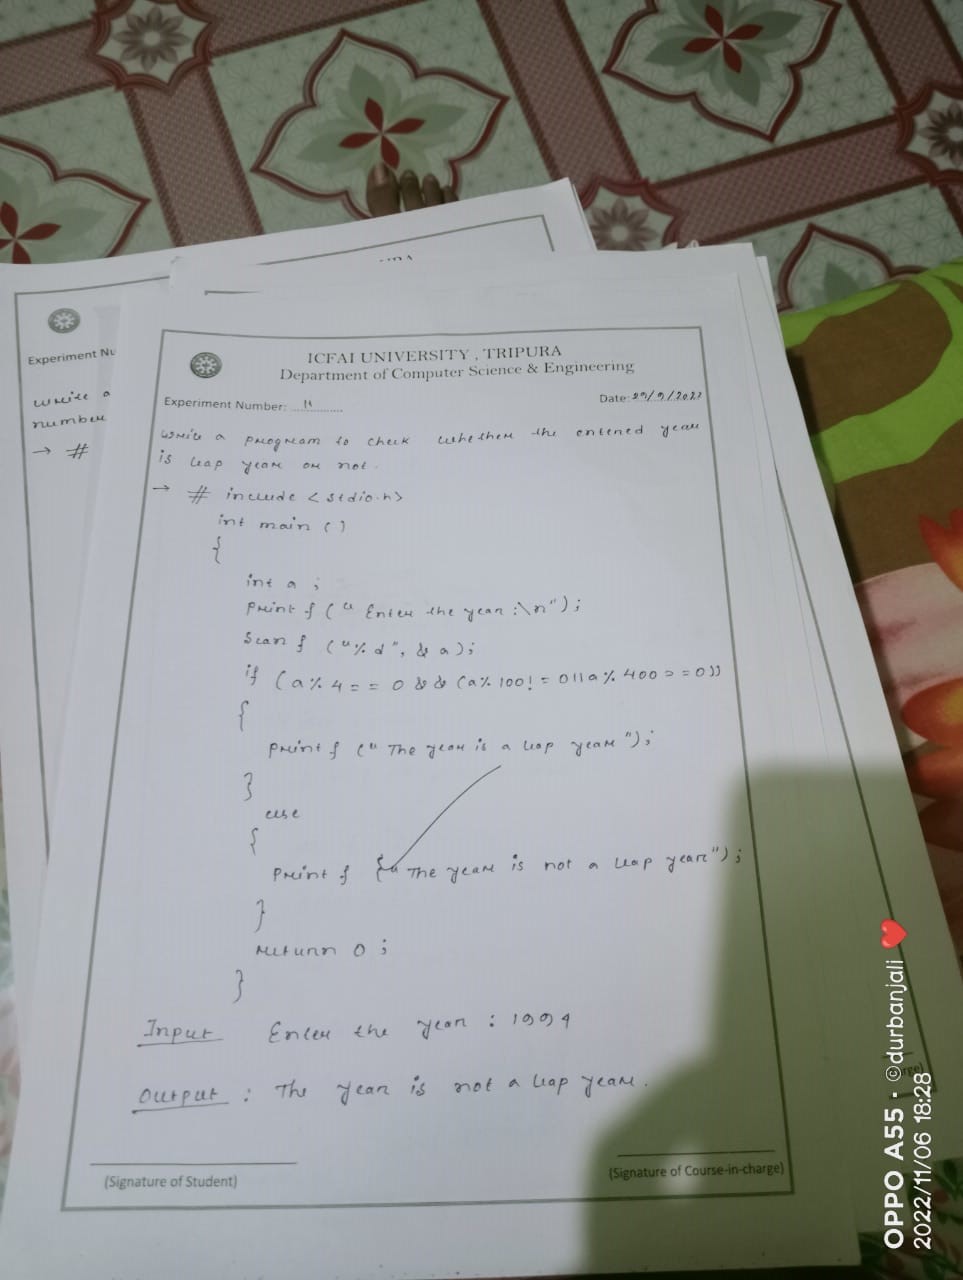 Experiment Nu
write a
number
→ #
ICFAI UNIVERSITY, TRIPURA
Department of Computer Science & Engineering
Experiment Number: 11
Date: 29/9/2022
write a program to check whether the entered year
is leap year or not.
→ # include <stdio.h>
int main ()
{
int a ;
printf (" Enter the year :\n");
Scanf ("%d", & a);
if (a% 4 == 0 && (a% 100! = 0 || a% 400 == 0))
{
printf (" The year is a leap year");
}
else
{
printf (" The year is not a leap year");
}
return 0 ;
}
Input Enter the year : 1994
Output : The year is not a leap year.
(Signature of Student)
(Signature of Course-in-charge)
rge)
OPPO A55 · ©durbanjali ❤
2022/11/06 18:28